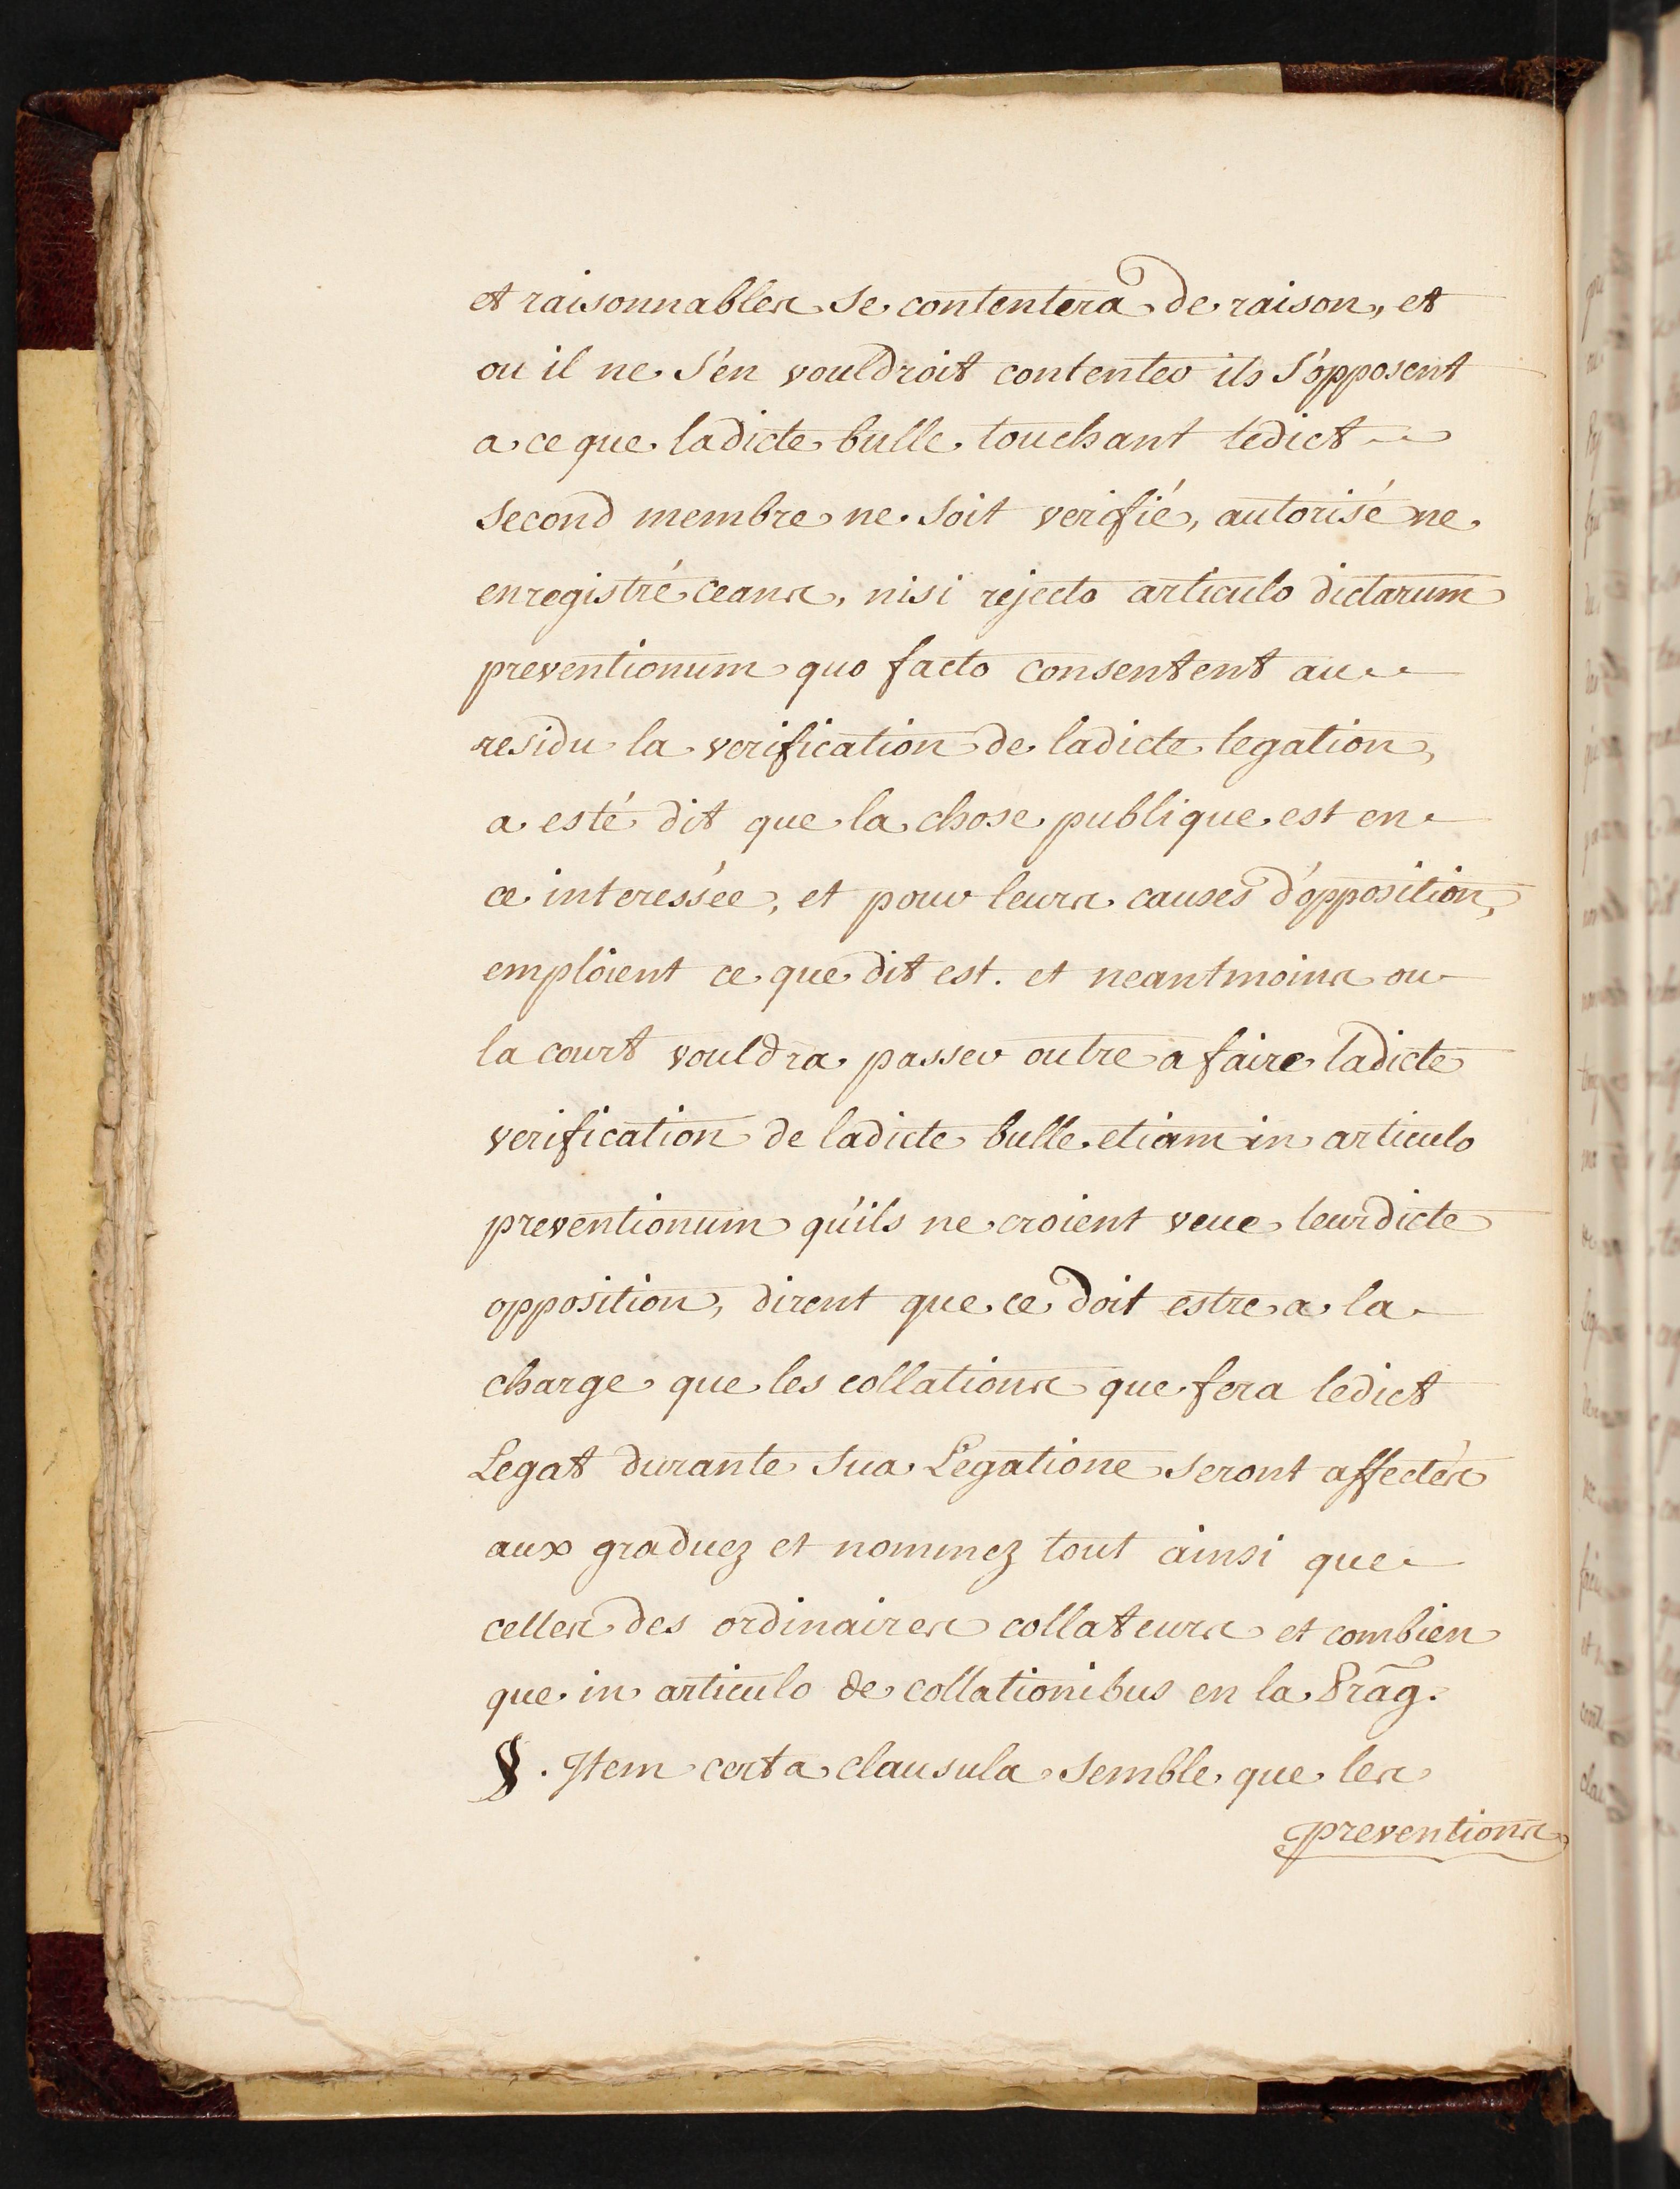 et raisonnables se contentera de raison, et
ou il ne s'en vouldroit contenter ils s'opposent
a ce que ladicte bulle touchant ledict
second membre ne soit verifié, autorisé ne
enregistré ceans, nisi rejecto articulo dictarum
preventionum quo facto consentent au
residu la verification de ladicte legation,
a esté dit que la chose publique est en
ce interessée, et pour leurs causes d'opposition,
emploient ce que dit est. et neantmoins ou
la court vouldra passer outre a faire ladicte
verification de ladicte bulle etiam in articulo
preventionum qu'ils ne croient veue leurdicte
opposition, dirent que ce doit estre a la
charge que les collations que fera ledict
Legat durante sua Legatione seront affectés
aux graduez et nommez tout ainsi que
celles des ordinaires collateurs et combien
que in articulo de collationibus en la Prag.
§. Item certa clausula semble que les
preventions